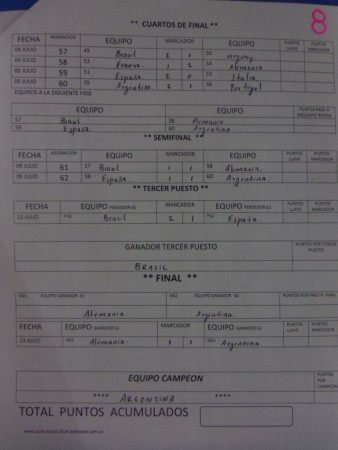 8
** CUARTOS DE FINAL **
FECHA ASIGNACION EQUIPO MARCADOR EQUIPO PUNTOS LLAVE PUNTOS MARCADOR
04 JULIO 57 49 Brasil 2 1 50
04 JULIO 58 53 1 2 54 Alemania
05 JULIO 59 51 España 2 0 52 Italia
05 JULIO 60 55 Argentina 2 56 Portugal
EQUIPOS A LA SIGUIENTE FASE
EQUIPO EQUIPO PUNTOS PASO A SIGUIENTE RONDA
57 Brasil 58 Alemania.
59 España. 60 Argentina.
** SEMIFINAL **
FECHA ASIGNACION EQUIPO MARCADOR EQUIPO PUNTOS LLAVE PUNTOS MARCADOR
08 JULIO 61 57 Brasil 1 1 58 Alemania.
09 JULIO 62 59 España. 1 1 60 Argentina.
** TERCER PUESTO **
FECHA EQUIPO PERDEDOR 61 MARCADOR EQUIPO PERDEDOR 62 PUNTOS LLAVE PUNTOS MARCADOR
12 JULIO P 61 Brasil 2 1 P62 España.
GANADOR TERCER PUESTO PUNTOS POR TERCER PUESTO
BRASIL
** FINAL **
G61 EQUIPO GANADOR 61 G62 EQUIPO GANADOR 62 PUNTOS POR PASO A FINAL
Alemania. Argentina.
FECHA EQUIPO GANADOR 61 MARCADOR EQUIPO GANADOR 62 PUNTOS LLAVE PUNTOS MARCADOR
13 JULIO G61 Alemania. 1 1 G62 Argentina.
EQUIPO CAMPEON PUNTOS POR CAMPEON
**** ARGENTINA ****
TOTAL PUNTOS ACUMULADOS